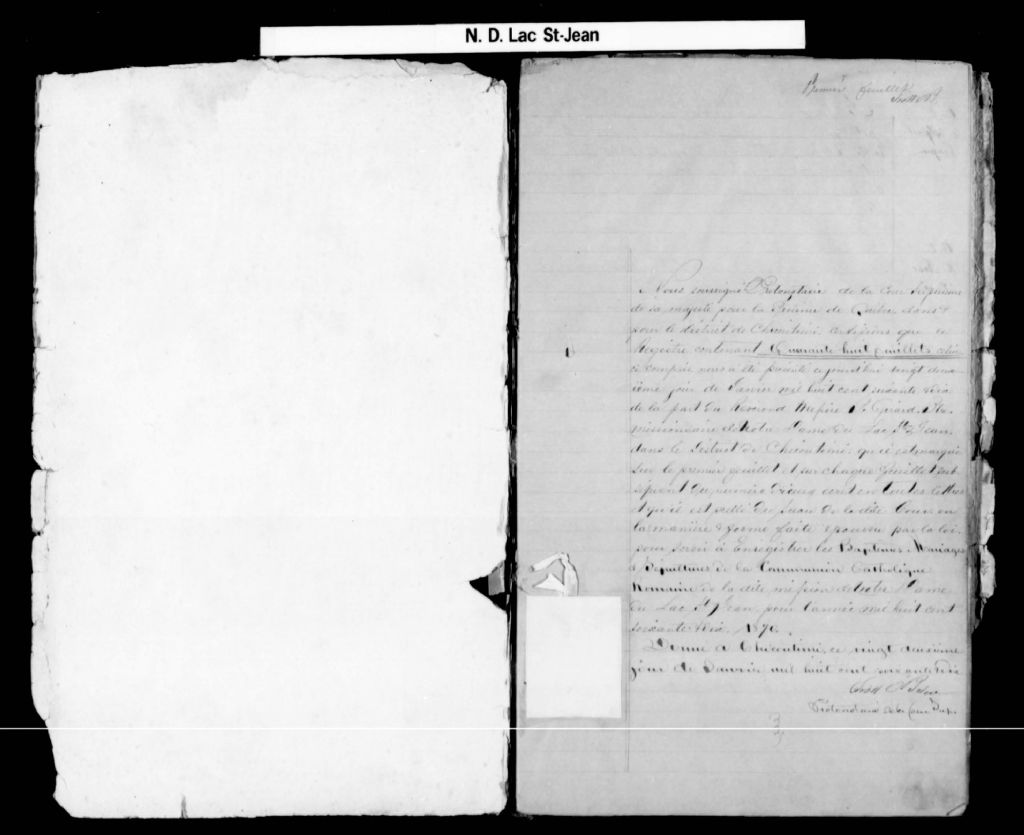 N. D. Lac St-Jean
Premier feuillet
Nous soussigné Protonotaire de la Cour Supérieure
de sa majesté pour la Province de Québec dans &
pour le district de Chicoutimi certifions que ce
Registre contenant Quarante huit feuillets celui
ci compris nous a été présenté aujourd'hui vingt deux
ième jour de Janvier mil huit cent soixante & dix
de la part du Révérend Messire Girard, Ptre
missionnaire de Notre Dame du Lac St Jean
dans le District de Chicoutimi, qu'il est marqué
sur le premier feuillet et sur chaque feuillet sub
séquent du numéro écrit en toutes lettres
et qu'il est scellé du sceau de la dite Cour en
la manière & forme faite & pourvue par la loi
pour servir à enregistrer les Baptêmes, Mariages
& Sépultures de la Communion Catholique
Romaine de la dite mission de Notre Dame
du Lac St Jean pour l'année mil huit cent
soixante & dix, 1870.
Donné à Chicoutimi, ce vingt deuxième
jour de Janvier mil huit cent soixante dix
Protonotaire de la Cour Sup.
3